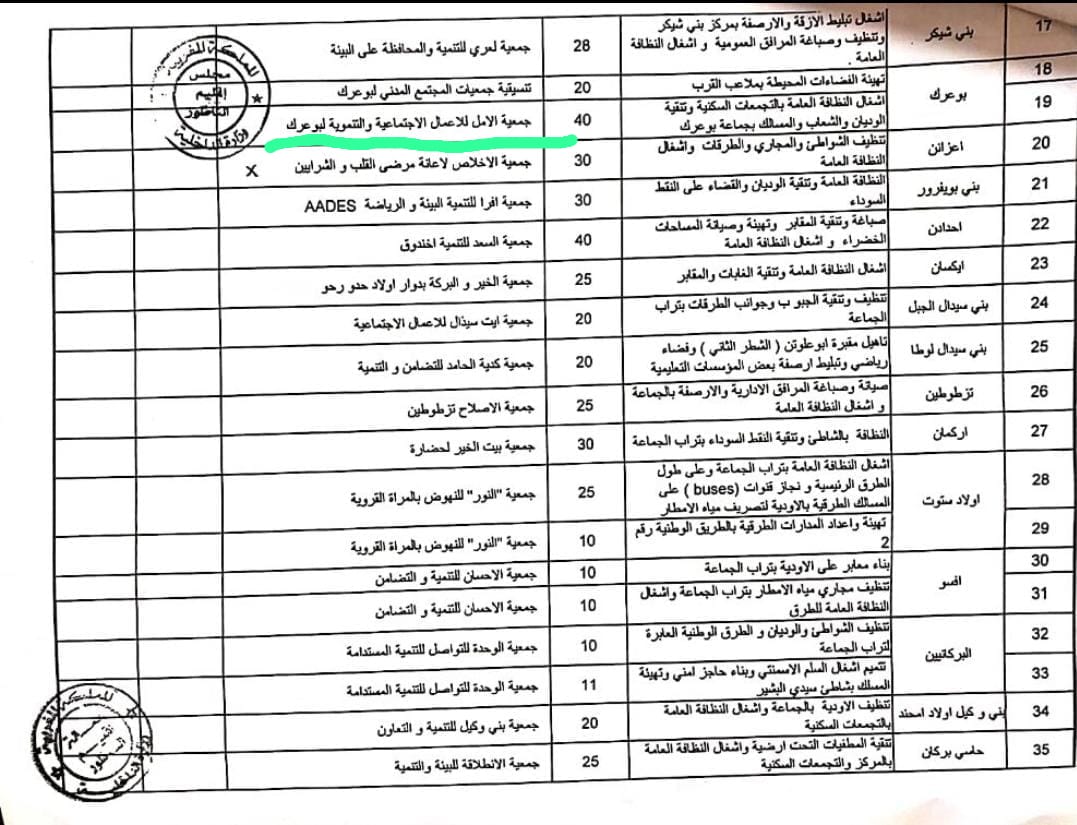 17
بني شيكر
اشغال تبليط الازقة والارصفة بمركز بني شيكر
وتنظيف وصباغة المرافق العمومية و اشغال النظافة
العامة .
28
جمعية لعري للتنمية والمحافظة على البيئة
18
بوعرك
تهيئة الفضاءات المحيطة بملاعب القرب
20
تنسيقية جمعيات المجتمع المدني لبوعرك
19
اشغال النظافة العامة بالتجمعات السكنية وتنقية
الوديان والشعاب والمسالك بجماعة بوعرك
40
جمعية الامل للاعمال الاجتماعية والتنموية لبوعرك
20
اعزانن
تنظيف الشواطئ والمجاري والطرقات واشغال
النظافة العامة
30
جمعية الاخلاص لاعانة مرضى القلب و الشرايين
X
21
بني بويفرور
النظافة العامة وتنقية الوديان والقضاء على النقط
السوداء
30
جمعية افرا للتنمية البيئة و الرياضة AADES
22
احدادن
صباغة وتنقية المقابر وتهيئة وصيانة المساحات
الخضراء و اشغال النظافة العامة
40
جمعية السعد للتنمية اخندوق
23
ايكسان
اشغال النظافة العامة وتنقية الغابات والمقابر
25
جمعية الخير و البركة بدوار اولاد حدو رحو
24
بني سيدال الجبل
تنظيف وتنقية الجبو ب وجوانب الطرقات بتراب
الجماعة
20
جمعية ايت سيذال للاعمال الاجتماعية
25
بني سيدال لوطا
تاهيل مقبرة ابوعلوتن ( الشطر الثاني ) وفضاء
رياضي وتبليط ارصفة بعض المؤسسات التعليمية
20
جمعية كدية الحامد للتضامن و التنمية
26
تزطوطين
صيانة وصباغة المرافق الادارية والارصفة بالجماعة
و اشغال النظافة العامة
25
جمعية الاصلاح تزطوطين
27
اركمان
النظافة بالشاطئ وتنقية النقط السوداء بتراب الجماعة
30
جمعية بيت الخير لحضارة
28
اولاد ستوت
اشغال النظافة العامة بتراب الجماعة وعلى طول
الطرق الرئيسية و نجاز قنوات (buses ) على
المسالك الطرقية بالاودية لتصريف مياه الامطار
25
جمعية "النور" للنهوض بالمراة القروية
29
تهيئة واعداد المدارات الطرقية بالطريق الوطنية رقم
2
10
جمعية "النور" للنهوض بالمراة القروية
30
افسو
بناء معابر على الاودية بتراب الجماعة
10
جمعية الاحسان للتنمية و التضامن
31
تنظيف مجاري مياه الامطار بتراب الجماعة واشغال
النظافة العامة للطرق
10
جمعية الاحسان للتنمية و التضامن
32
البركانيين
تنظيف الشواطئ والوديان و الطرق الوطنية العابرة
لتراب الجماعة
10
جمعية الوحدة للتواصل للتنمية المستدامة
33
تتميم اشغال السلم الاسمنتي وبناء حاجز امني وتهيئة
المسلك بشاطئ سيدي البشير
11
جمعية الوحدة للتواصل للتنمية المستدامة
34
بني و كيل اولاد امحند
تنظيف الاودية بالجماعة واشغال النظافة العامة
بالتجمعات السكنية
20
جمعية بني وكيل للتنمية و التعاون
35
حاسي بركان
تنقية المطفيات التحت ارضية واشغال النظافة العامة
بالمركز والتجمعات السكنية
25
جمعية الانطلاقة للبيئة والتنمية
المملكة المغربية
مجلس
إقليم
الناظور
وزارة الداخلية
المملكة المغربية